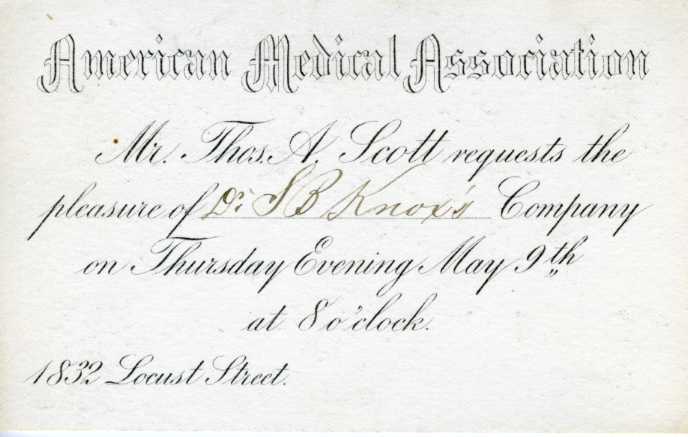 American Medical Association
Mr. Thos. A. Scott requests the
pleasure of Dr. S B Knox's Company
on Thursday Evening May 9th
at 8 o'clock.
1832 Locust Street.